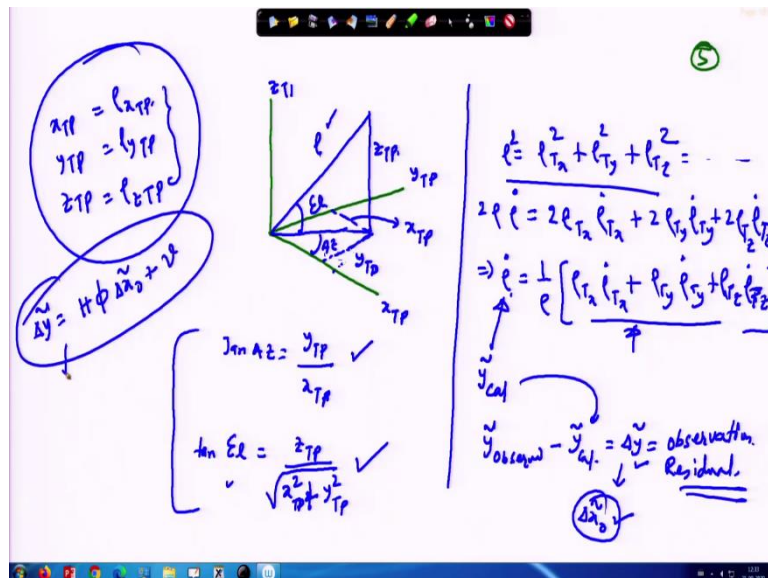 x_TP = ρ_xTP.
y_TP = ρ_yTP
z_TP = ρ_zTP
Δỹ = HϕΔx̃₀ + v
z_T1
ρ
El
Az
z_TP.
y_TP
x_TP
y_TP
x_TP
Tan Az = y_TP / x_TP ✓
tan El = z_TP / √(x²_TP + y²_TP) ✓
5
ρ² = ρ²_Tx + ρ²_Ty + ρ²_Tz = - - -
2ρρ̇ = 2ρ_Tx ρ̇_Tx + 2ρ_Ty ρ̇_Ty + 2ρ_Tz ρ̇_Tz
⇒ ρ̇ = 1/ρ [ρ_Tx ρ̇_Tx + ρ_Ty ρ̇_Ty + ρ_Tz ρ̇_Tz
ỹ_cal
ỹ_observed - ỹ_cal. = Δỹ = observation.
Residual.
Δx̃₀